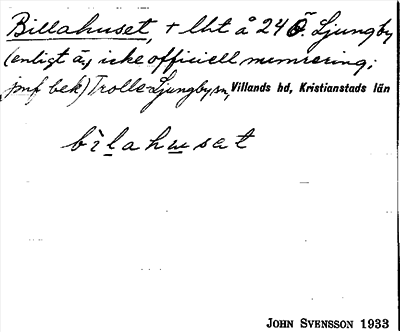 Billahuset, + lht å 24 Ö. Ljungby
(enligt äj icke officiell numrering;
jmf bek) Trolle-Ljungby sn, Villands hd, Kristianstads län
bìlahusat
JOHN SVENSSON 1933